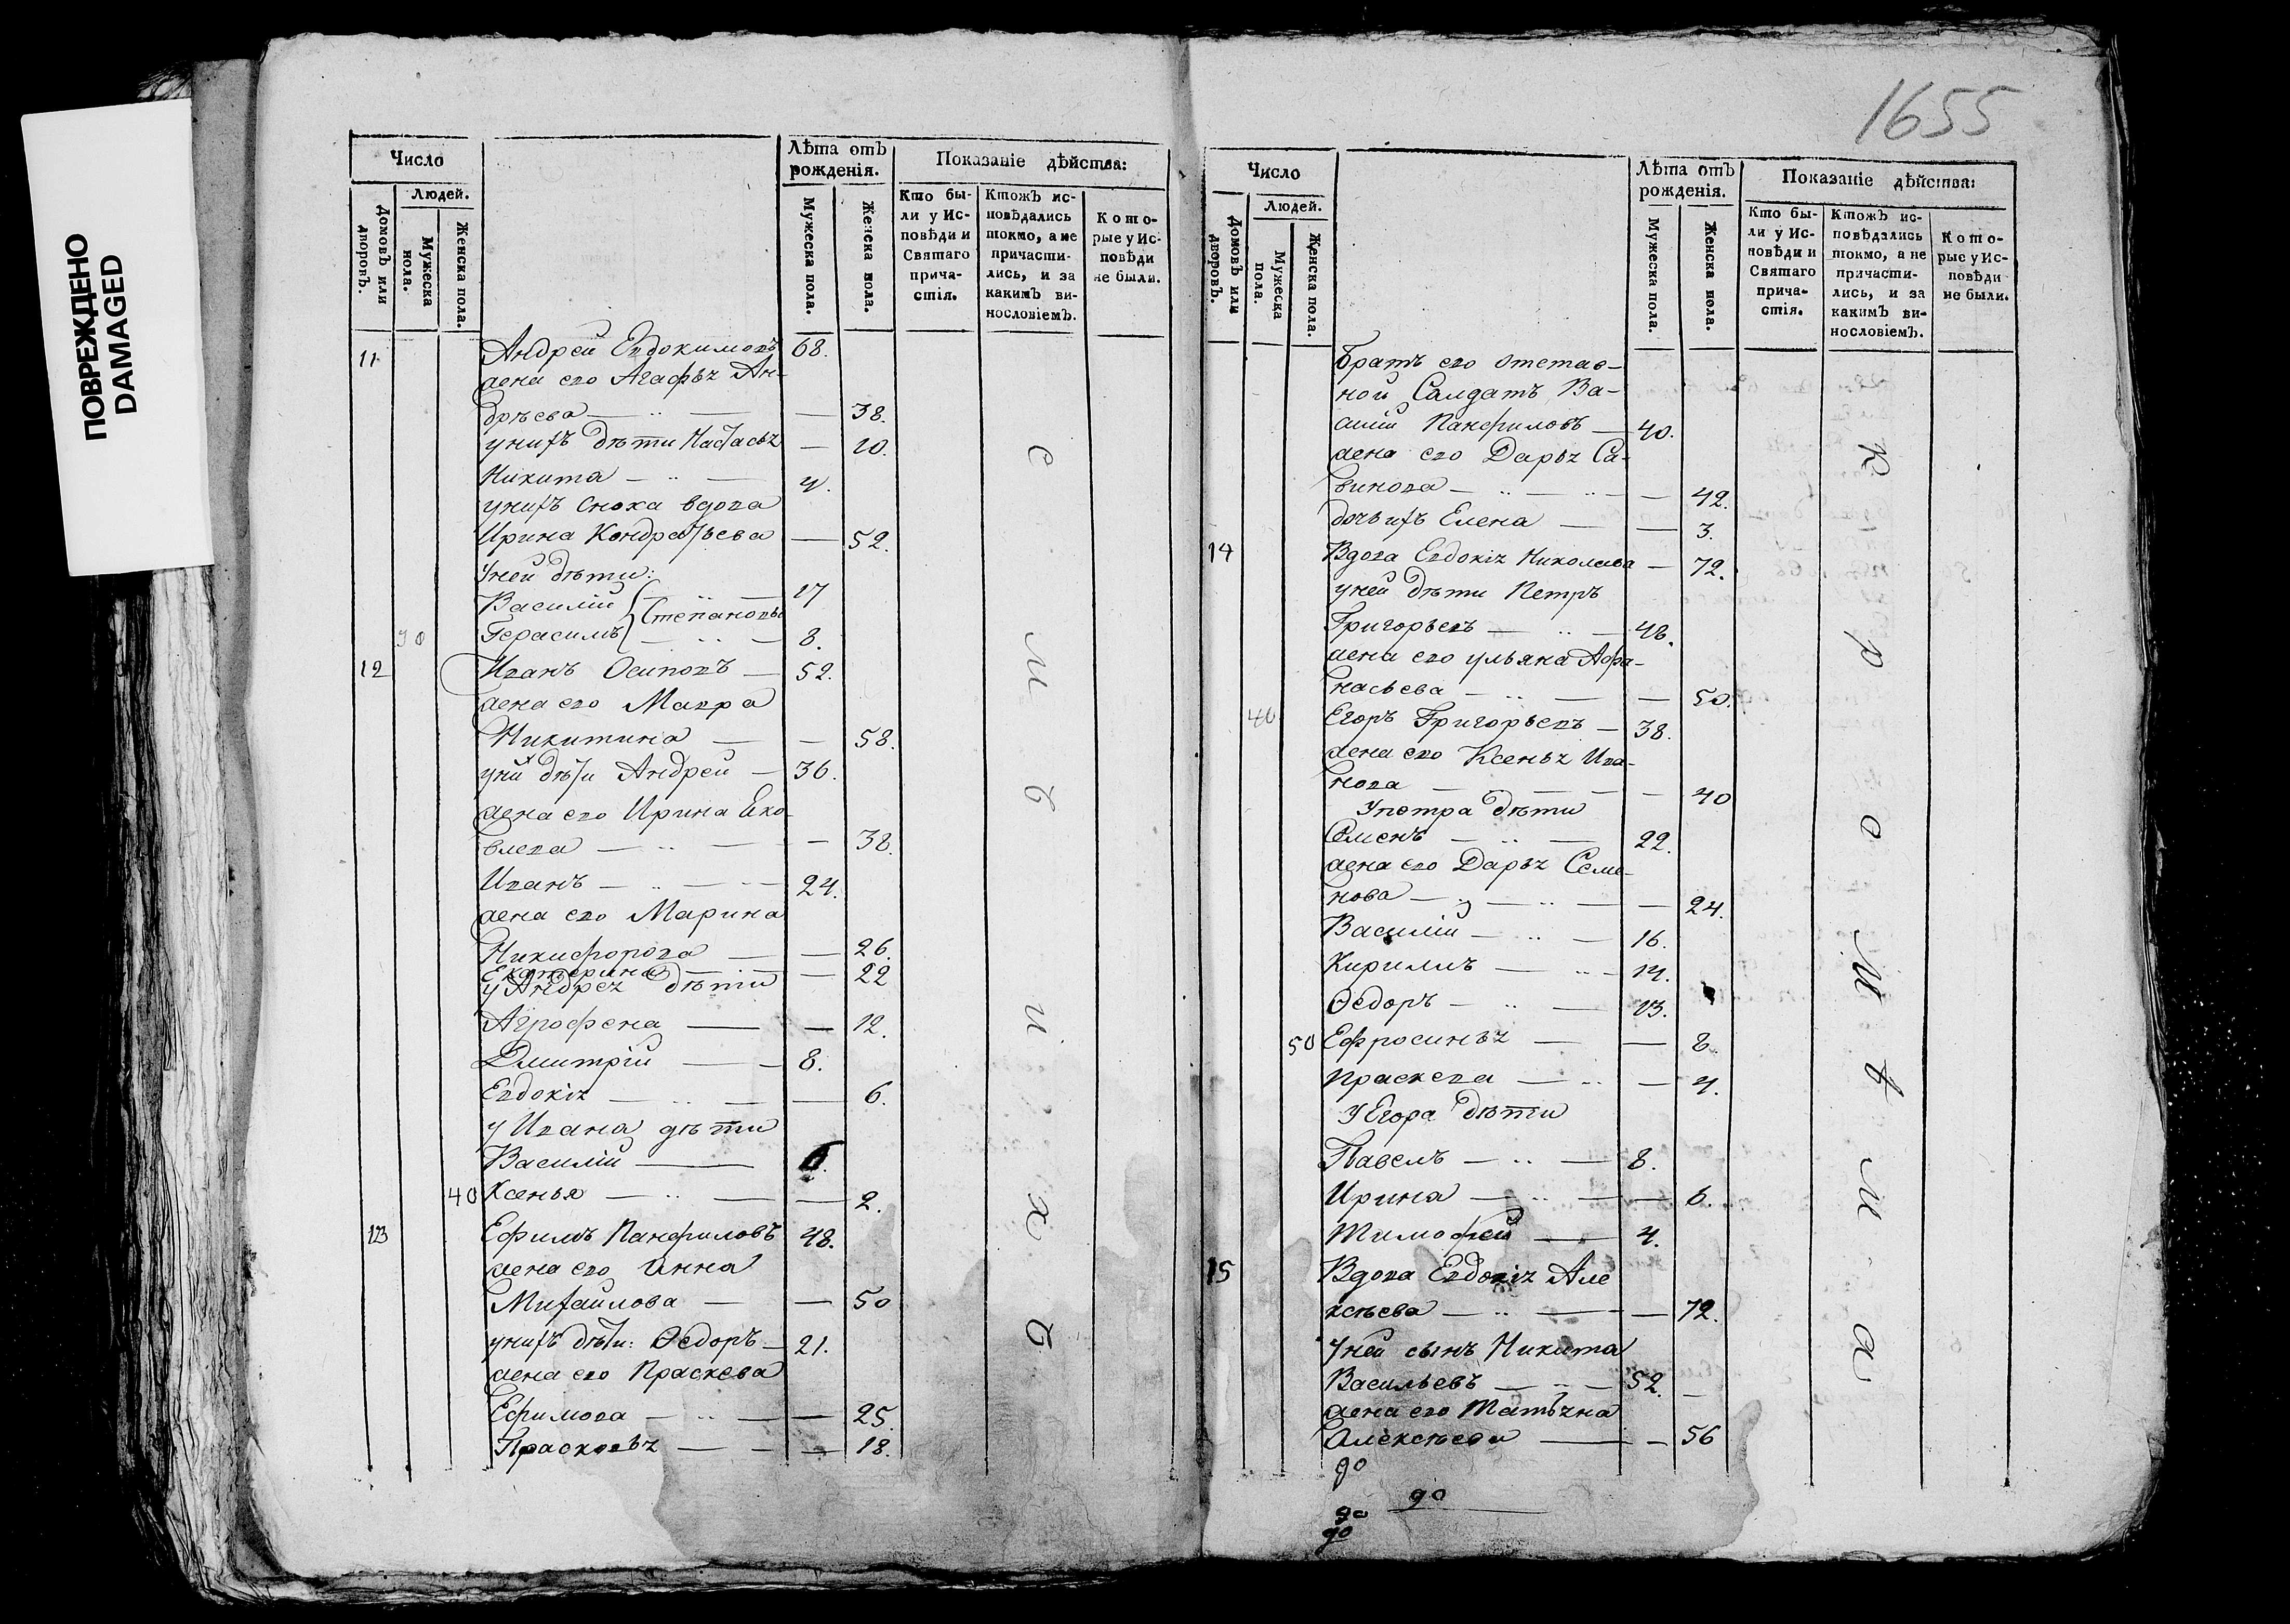 ПОВРЕЖДЕНО
DAMAGED
1655
Число
Людей.
Домовъ или дворовъ.
Мужеска пола.
Женска пола.
Лѣта отъ рожденія.
Мужеска пола.
Женска пола.
Показаніе дѣйства:
Кто были у Исповѣди и Святаго причастія.
Ктожъ исповѣдались токмо, а не причастились, и за какимъ винословіемъ.
Которые у Исповѣди не были.
11 Андрей Евдокимовъ 68.
жена его Агафья Ан-
дрѣева — — 38.
у нихъ дѣти Настасья — 10.
Никита — 4.
у нихъ сноха вдова
Ирина Кондратьева — 52.
У ней дѣти:
Василій { — 17
Степановы
30 Герасимъ { — 8.
12 Иванъ Осиповъ — 52.
жена его Мавра
Никитина — — 58.
у них дѣти Андрей — 36.
жена его Ирина Яко-
влева — — 38.
Иванъ — 24.
жена его Марина
Никифорова — — 26.
Екатерина — — 22
у Андрея дѣти
Агрофена — — 12.
Дмитрій — 8.
Евдокія — — 6.
у Ивана дѣти
Василій — 6.
40 Ксенья — — 2.
13 Ефимъ Панфиловъ 48.
жена его Анна
Михаилова — — 50
у нихъ дѣти: Ѳедоръ — 21.
жена его Праскева
Ефимова — — 25.
Прасковья — — 18.
с м ѣ и х ъ
Число
Людей.
Домовъ или дворовъ.
Мужеска пола.
Женска пола.
Лѣта отъ рожденія.
Мужеска пола.
Женска пола.
Показаніе дѣйства:
Кто были у Исповѣди и Святаго причастія.
Ктожъ исповѣдались токмо, а не причастились, и за какимъ винословіемъ.
Которые у Исповѣди не были.
братъ его отстав-
ной Салдатъ Ва-
силій Панфиловъ — 40.
жена его Дарья Са-
винова — — 42.
дочь ихъ Елена — — 3.
14 Вдова Евдокія Николаева — 72.
у ней дѣти Петръ
Григорьевъ — 48.
жена его Ульяна Афа-
насьева — — 50.
40 Егоръ Григорьевъ — 38.
жена его Ксенья Ива-
нова — — 40
У петра дѣти
Семенъ — 22.
жена его Дарья Семе-
нова — — 24.
Василій — 16.
Кирилъ — 14.
Ѳедоръ — 13.
50 Ефросинья — — 8.
Праскева — — 4.
У Егора дѣти
Павелъ — 8.
Ирина — — 6.
Тимофей — 4.
15 Вдова Евдокія Але
ксѣева — — 72.
У ней сынъ Никита
Васильевъ — 52.
жена его Татьяна
Алексѣева — — 56
до
до
до
до